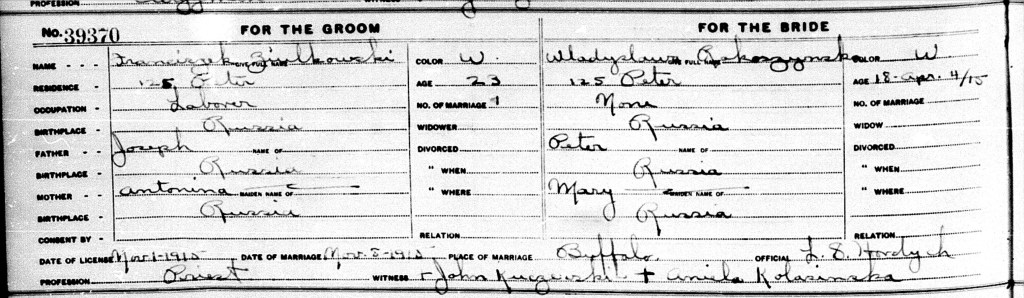 PROFESSION
WITNESS
No. 39370 FOR THE GROOM FOR THE BRIDE
NAME - - - Franciszek Ziolkowski GIVE FULL NAME COLOR - W. Wladyslawa GIVE FULL NAME COLOR - W
RESIDENCE - 125, Peter AGE 23 125 Peter AGE 18 - Apr. 4/15
OCCUPATION - Laborer NO. OF MARRIAGE 1 None NO. OF MARRIAGE
BIRTHPLACE - Russia WIDOWER Russia WIDOW
FATHER - - Joseph NAME OF DIVORCED Peter NAME OF DIVORCED
BIRTHPLACE - Russia " WHEN Russia " WHEN
MOTHER - - Antonina MAIDEN NAME OF " WHERE Mary MAIDEN NAME OF " WHERE
BIRTHPLACE - Russia Russia
CONSENT BY - RELATION RELATION
DATE OF LICENSE Nov-1-1915 DATE OF MARRIAGE Nov-8-1915 PLACE OF MARRIAGE Buffalo. OFFICIAL
PROFESSION Priest WITNESS + John + Aniela Kolasinska